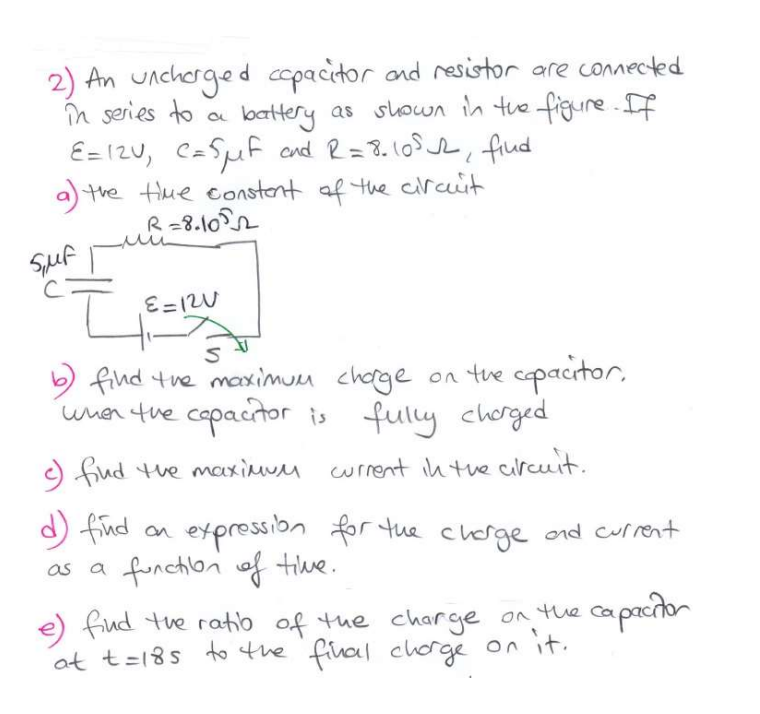 2) An uncharged capacitor and resistor are connected
in series to a battery as shown in the figure. If
ε=12V, C=5μF and R=8.10⁵Ω, find
a) the time constant of the circuit
R=8.10⁵Ω
5μF
C
ε=12V
S
b) find the maximum charge on the capacitor,
when the capacitor is fully charged
c) find the maximum current in the circuit.
d) find an expression for the charge and current
as a function of time.
e) find the ratio of the charge on the capacitor
at t=18s to the final charge on it.